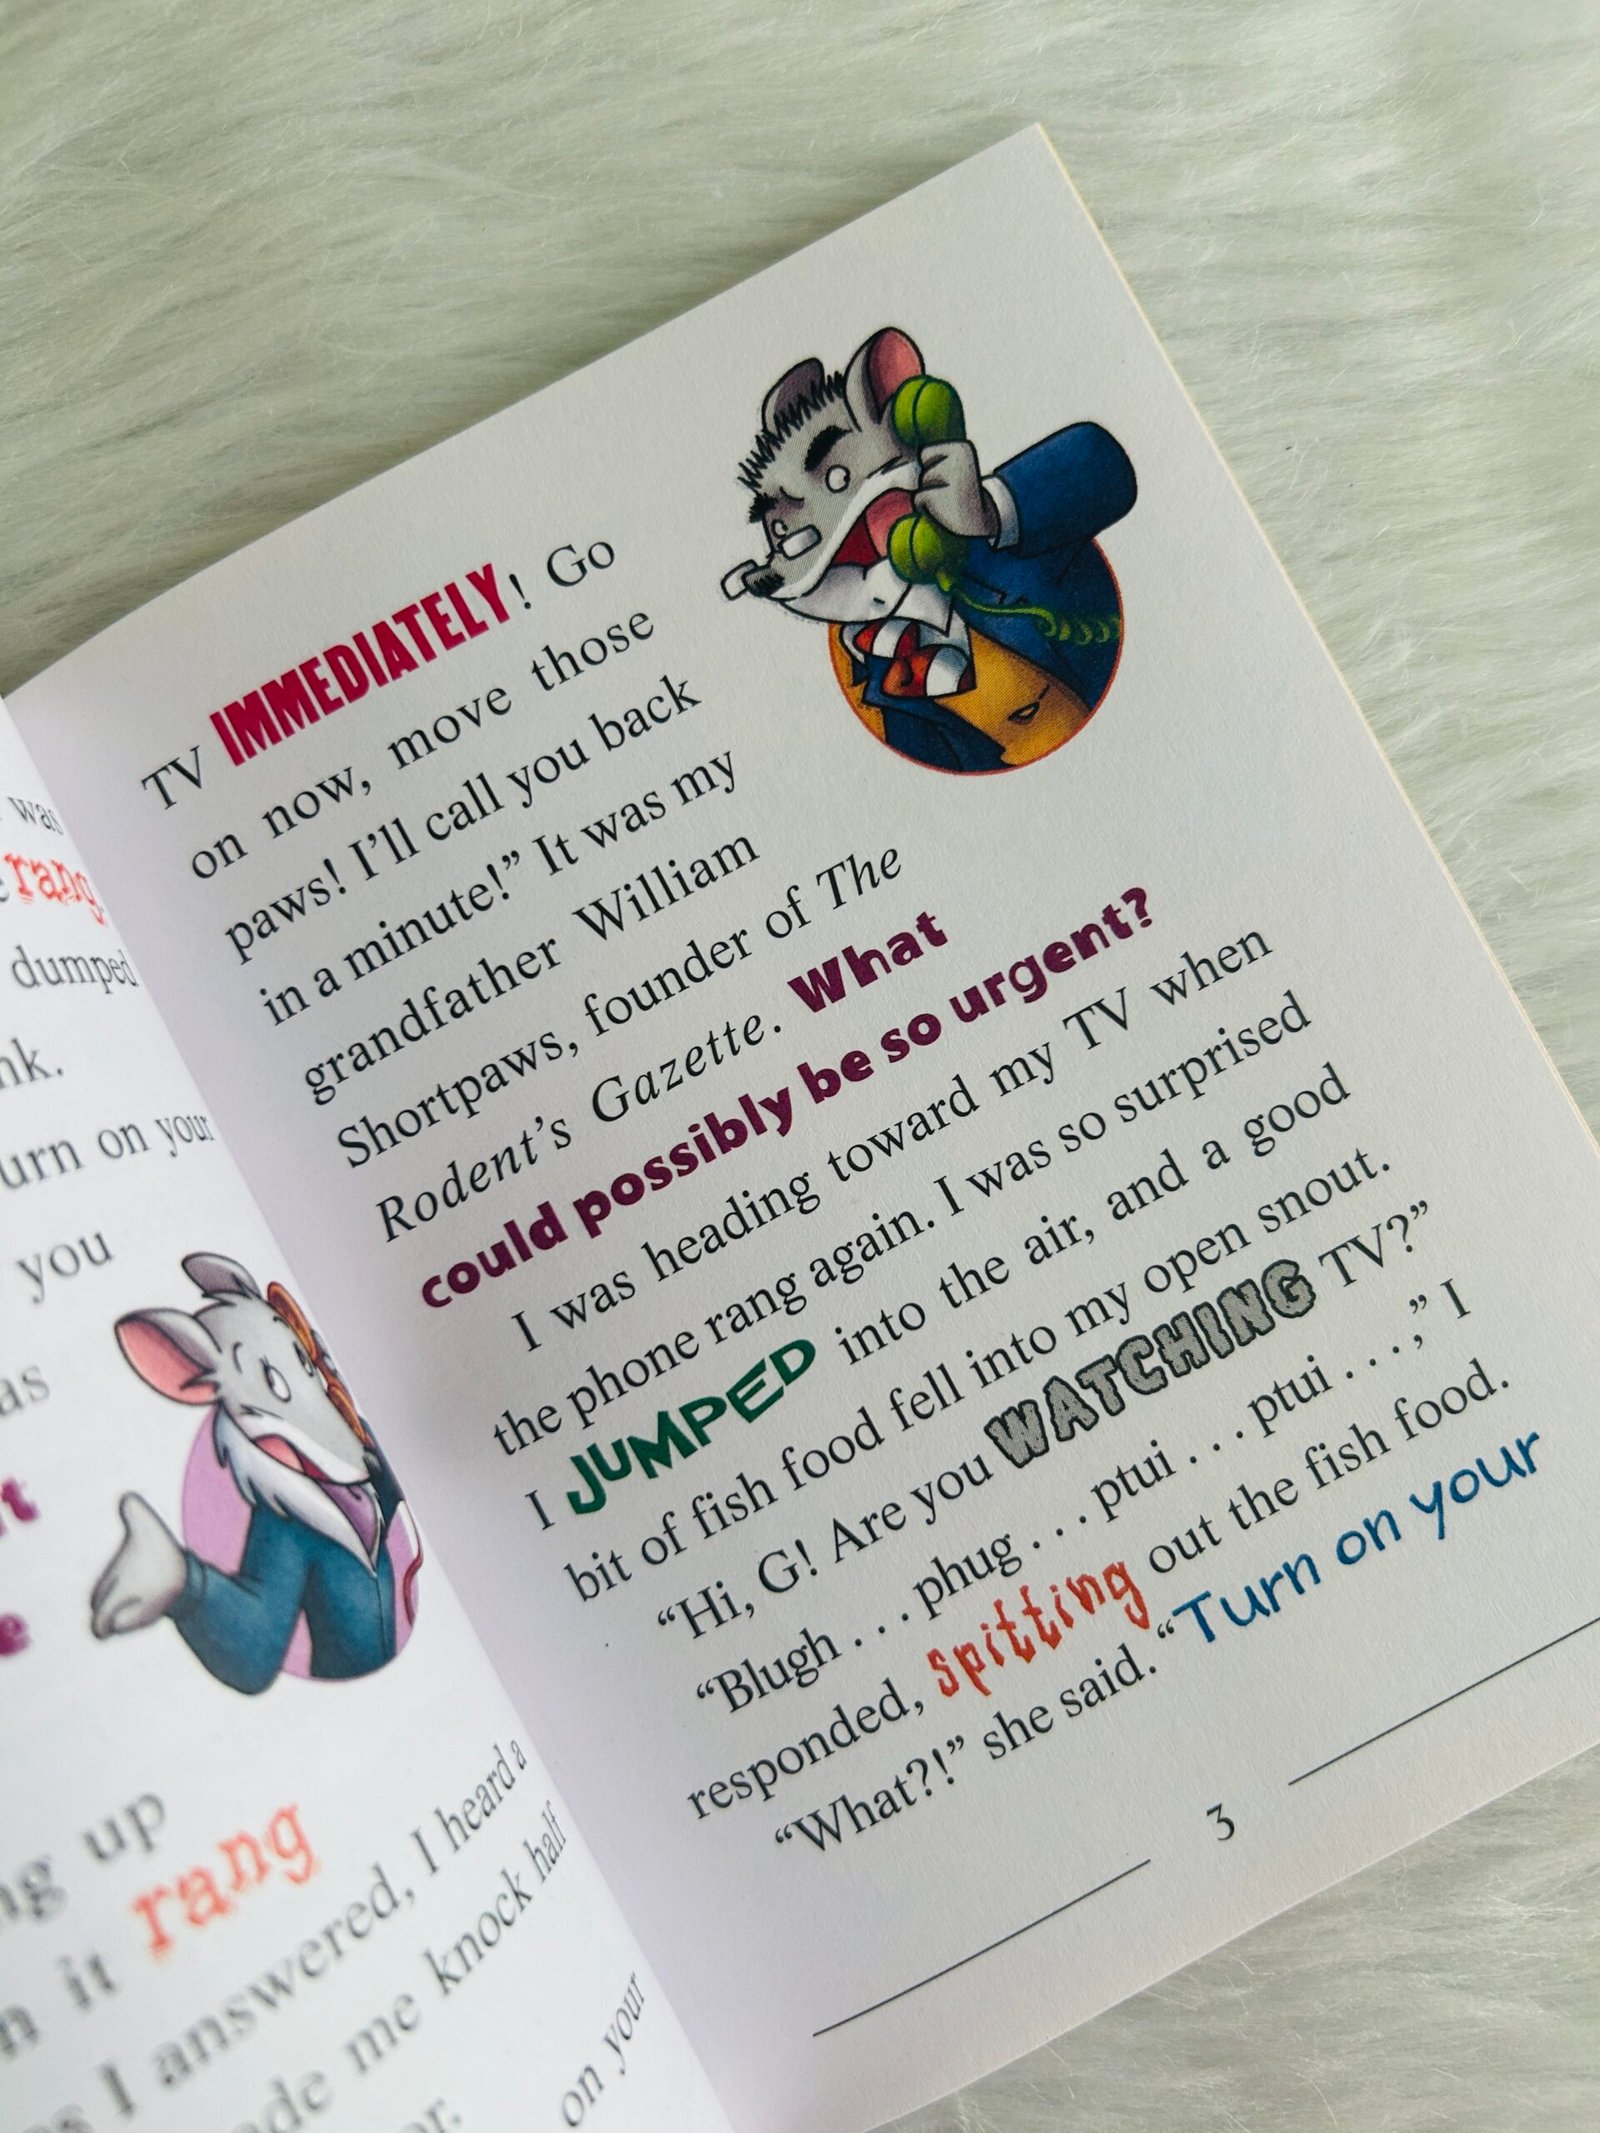 was
rang
dumped
on your
you
up
it rang
I answered, I heard a
me knock half
on your
TV IMMEDIATELY! Go
on now, move those
paws! I'll call you back
in a minute!” It was my
grandfather William
Shortpaws, founder of The
Rodent's Gazette. What
could possibly be so urgent?
I was heading toward my TV when
the phone rang again. I was so surprised
I JUMPED into the air, and a good
bit of fish food fell into my open snout.
“Hi, G! Are you WATCHING TV?”
“Blugh . . . phug . . . ptui . . . ptui . . . ,” I
responded, spitting out the fish food.
“What?!” she said. “Turn on your
3